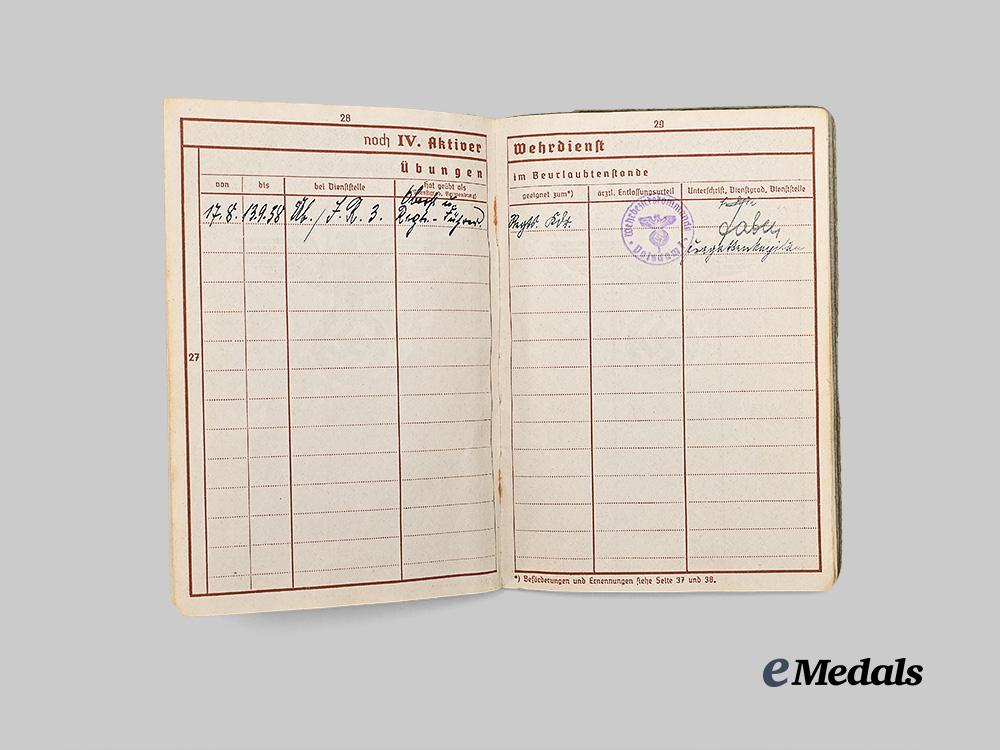 28
noch IV. Aktiver
Übungen
von
bis
bei Dienststelle
hat geübt als
17.8. 13.9.38 Üb./J.R. 3.
Oberst u.
Regts.-Führer.
27
29
Wehrdienst
im Beurlaubtenstande
geeignet zum*)
ärztl. Entlassungsurteil
Unterschrift, Dienstgrad, Dienststelle
Regts. Kdr.
Wehrbezirkskommando
Potsdam
Fregattenkapitän
*) Beförderungen und Ernennungen siehe Seite 37 und 38.
eMedals